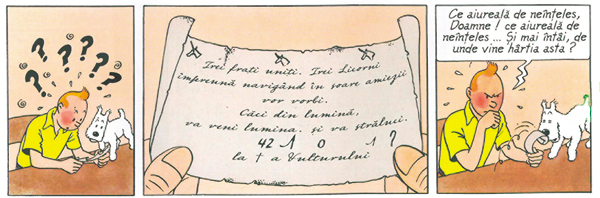 ? ? ? ? ? ?
Trei frați uniți. Trei Licorni
împreună navigând în soare amiezii
vor vorbi.
Căci din lumină,
va veni lumina. și va străluci.
42 1 0 1 ?
la † a Vulturului
Ce aiureală de neînțeles,
Doamne ! ce aiureală de
neînțeles ... Și mai întâi, de
unde vine hârtia asta ?